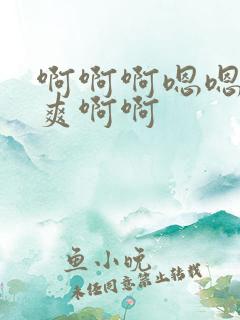 啊啊啊嗯嗯
爽啊啊
鱼小晚
未经同意禁止转载